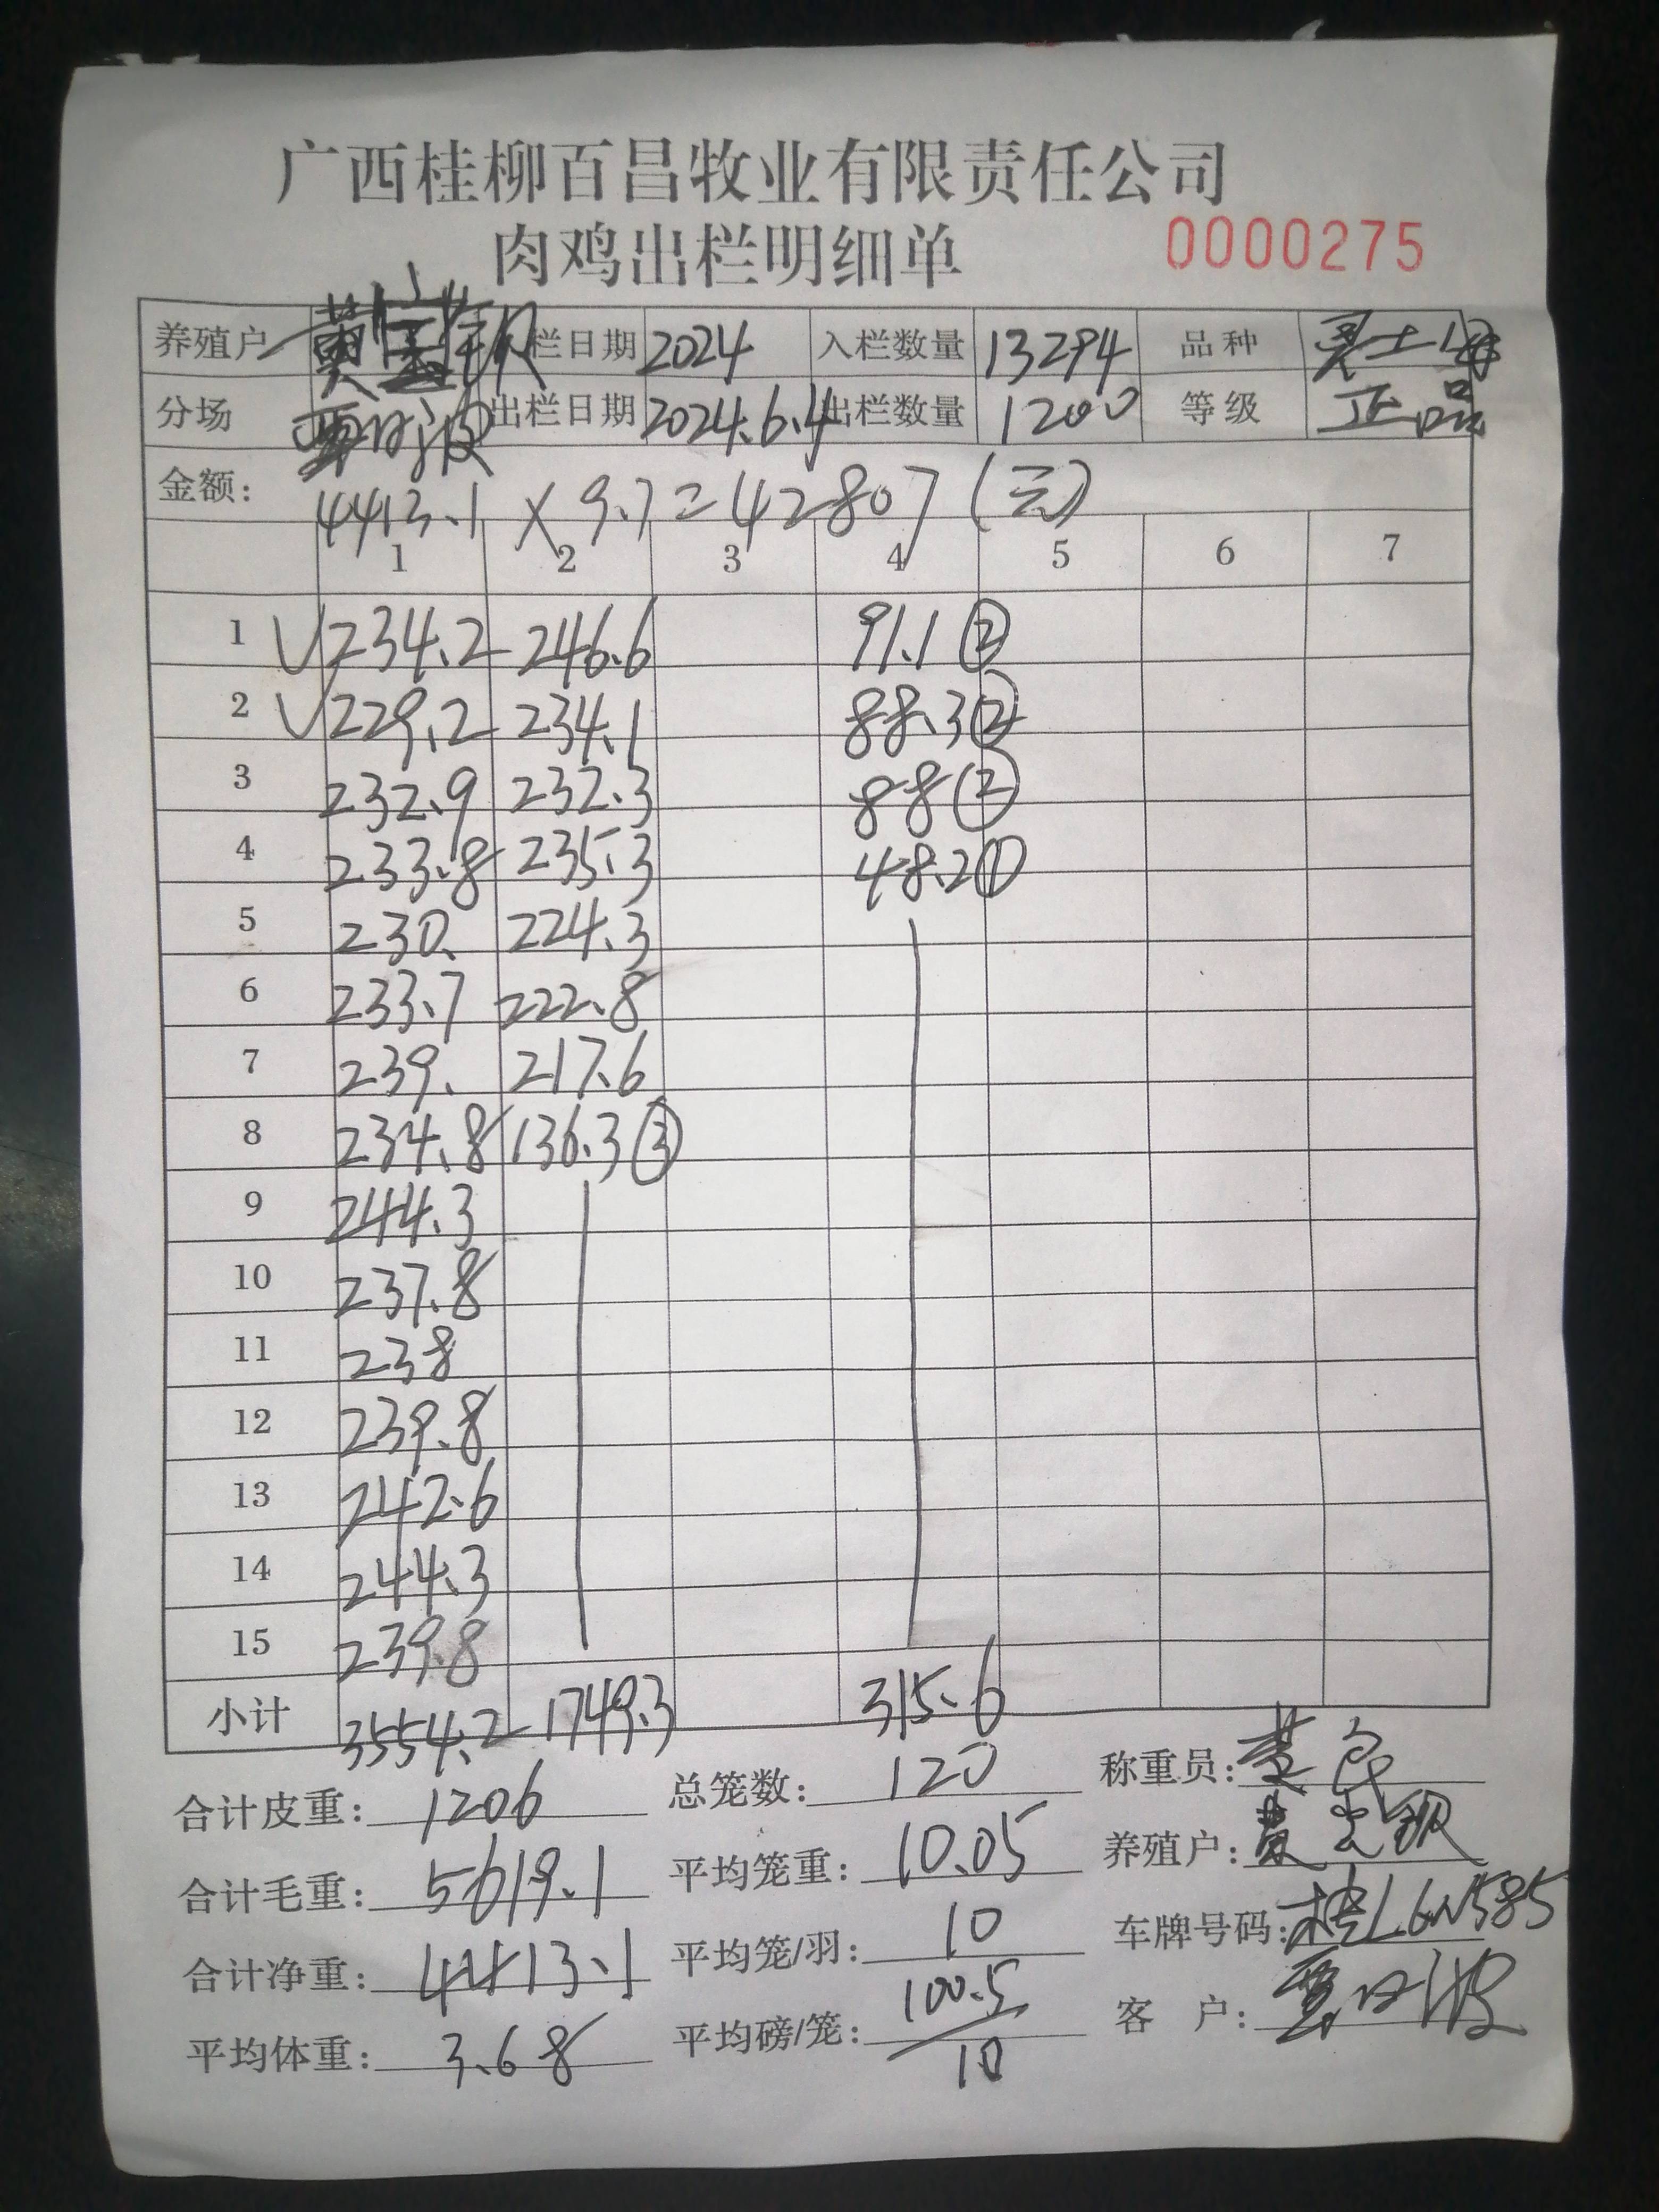 广西桂柳百昌牧业有限责任公司
肉鸡出栏明细单 0000275
养殖户 栏日期 2024 入栏数量 13294 品种
分场 出栏日期 2024.6.4 出栏数量 1200 等级 正品
金额: 4413.1 × 9.7 = 42807 (元)
1 2 3 4 5 6 7
1 √ 234.2 246.6 91.1 ②
2 √ 229.2 234.1 88.3 ②
3 232.9 232.3 88 ②
4 233.8 235.3 48.2 ①
5 230. 224.3
6 233.7 222.8
7 239. 217.6
8 234.8 136.3 ③
9 244.3
10 237.8
11 238
12 239.8
13 242.6
14 244.3
15 239.8
小计 3554.2 1749.3 315.6
合计皮重: 1206 总笼数: 120 称重员:
合计毛重: 5619.1 平均笼重: 10.05 养殖户:
合计净重: 4413.1 平均笼/羽: 10 车牌号码: 桂L6N585
平均体重: 3.68 平均磅/笼: 100.5/10 客 户: